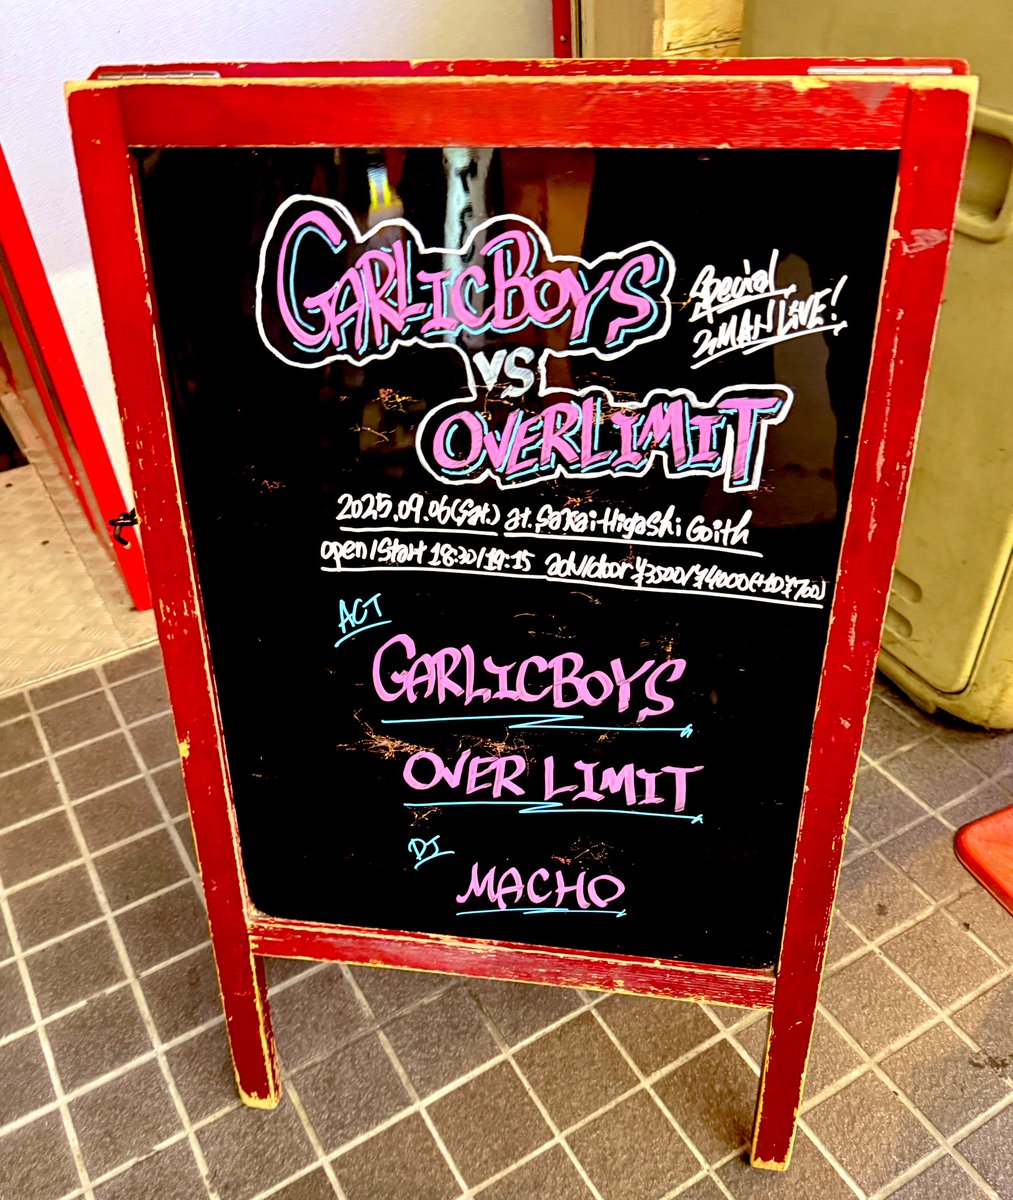 GARLICBOYS
Special
2MAN LIVE!
VS
OVERLIMIT
2025.09.06(Sat.) at.SakaiHigashi Goith
open/Start 18:30/19:15 adv/door ¥3500/¥4000(+1D¥700)
ACT
GARLICBOYS
OVER LIMIT
DJ
MACHO